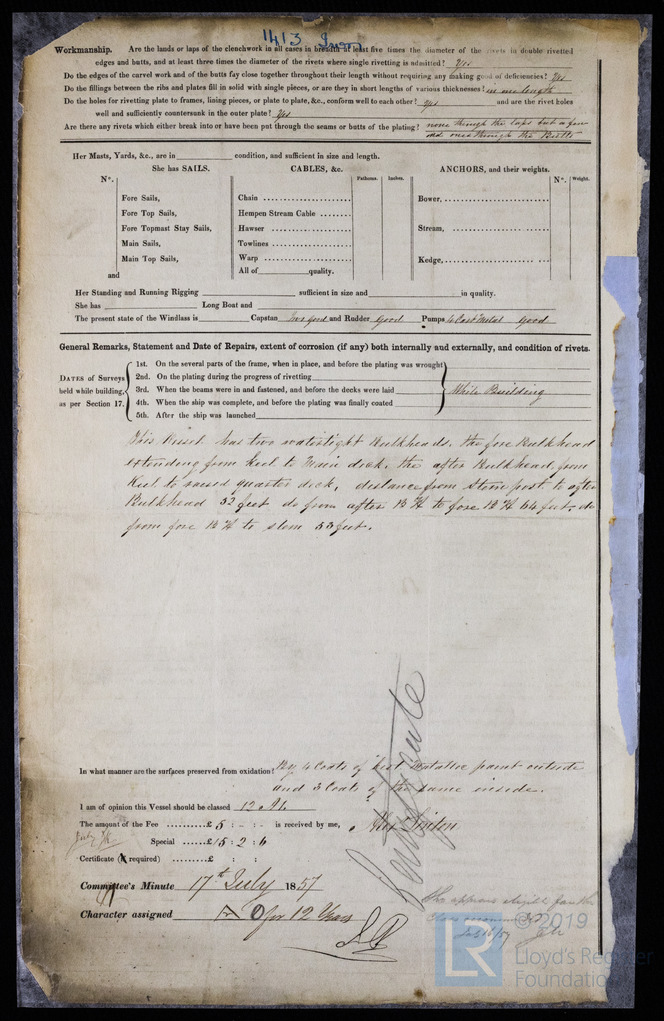 1413 Iron
Workmanship. Are the lands or laps of the clenchwork in all cases in breadth at least five times the diameter of the rivets in double rivetted
edges and butts, and at least three times the diameter of the rivets where single rivetting is admitted? Yes
Do the edges of the carvel work and of the butts fay close together throughout their length without requiring any making good of deficiencies? Yes
Do the fillings between the ribs and plates fill in solid with single pieces, or are they in short lengths of various thicknesses? in one length
Do the holes for rivetting plate to frames, lining pieces, or plate to plate, &c., conform well to each other? Yes and are the rivet holes
well and sufficiently countersunk in the outer plate? Yes
Are there any rivets which either break into or have been put through the seams or butts of the plating? none through the laps but a few
odd ones through the Butts
Her Masts, Yards, &c., are in condition, and sufficient in size and length.
She has SAILS. CABLES, &c. ANCHORS, and their weights.
N°. Fathoms. Inches. N°. Weight.
Fore Sails, Chain Bower,
Fore Top Sails, Hempen Stream Cable
Fore Topmast Stay Sails, Hawser Stream,
Main Sails, Towlines
Main Top Sails, Warp Kedge,
and All of quality.
Her Standing and Running Rigging sufficient in size and in quality.
She has Long Boat and
The present state of the Windlass is Capstan two good and Rudder Good Pumps 4 Cast Metal Good
General Remarks, Statement and Date of Repairs, extent of corrosion (if any) both internally and externally, and condition of rivets.
DATES of Surveys held while building, as per Section 17.
1st. On the several parts of the frame, when in place, and before the plating was wrought
2nd. On the plating during the progress of rivetting
3rd. When the beams were in and fastened, and before the decks were laid
4th. When the ship was complete, and before the plating was finally coated
5th. After the ship was launched
While Building
This Vessel has two watertight Bulkheads, the fore Bulkhead
extending from keel to Main deck, the after Bulkhead from
keel to raised quarter deck, distance from Stern post to after
Bulkhead 32 feet do from after B H to fore B H 64 feet, do
from fore B H to stem 33 feet.
In what manner are the surfaces preserved from oxidation? By 4 Coats of best Metallic paint outside
and 3 Coats of the same inside.
I am of opinion this Vessel should be classed 12 A1
The amount of the Fee £5 : - : - is received by me,
Special £15 : 2 : 6
Certificate (if required) £ : :
Committee's Minute 17th July 1857
Character assigned for 12 Years
© 2019
LR
Lloyd's Register
Foundation